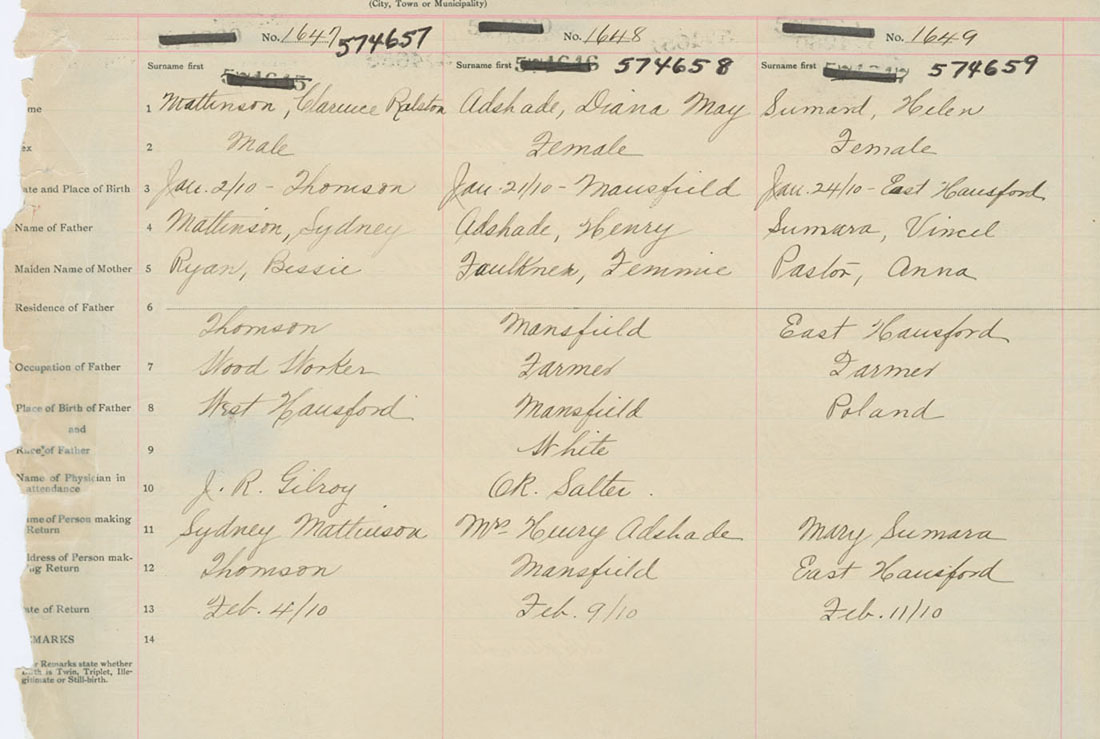 (City, Town or Municipality)
No. 1647 574657 No. 1648 No. 1649
Surname first Surname first 574658 Surname first 574659
me 1 Mattinson, Clarence Ralston Adshade, Diana May Sumard, Helen
ex 2 Male Female Female
ate and Place of Birth 3 Jan. 2/10 - Thomson Jan. 21/10 - Mansfield Jan. 24/10 - East Hansford
Name of Father 4 Mattinson, Sydney Adshade, Henry Sumara, Vincel
Maiden Name of Mother 5 Ryan, Bessie Faulkner, Femmie Pastor, Anna
Residence of Father 6
Thomson Mansfield East Hansford
Occupation of Father 7 Wood Worker Farmer Farmer
Place of Birth of Father 8 West Hansford Mansfield Poland
and
Race of Father 9 White
Name of Physician in
attendance 10 J. R. Gilroy Salter.
me of Person making
Return 11 Sydney Mattinson Mrs Henry Adshade Mary Sumara
ddress of Person mak-
ng Return 12 Thomson Mansfield East Hansford
te of Return 13 Feb. 4/10 Feb. 9/10 Feb. 11/10
EMARKS 14
r Remarks state whether
birth is Twin, Triplet, Ille-
gitimate or Still-birth.